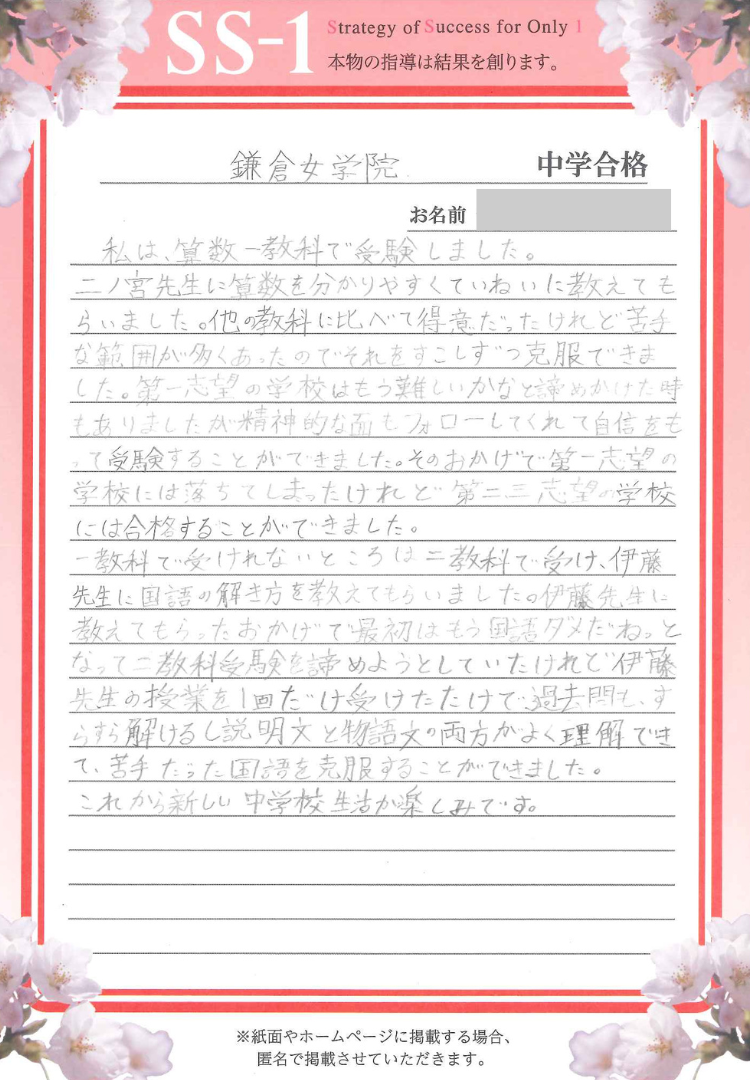 SS-1
Strategy of Success for Only 1
本物の指導は結果を創ります。
鎌倉女学院 中学合格
お名前
私は、算数一教科で受験しました。
二ノ宮先生に算数を分かりやすくていねいに教えても
らいました。他の教科に比べて得意だったけれど苦手
な範囲が多くあったのでそれをすこしずつ克服できま
した。第一志望の学校はもう難しいかなと諦めかけた時
もありましたが精神的な面もフォローしてくれて自信をも
って受験することができました。そのおかげで第一志望の
学校には落ちてしまったけれど第二三志望の学校
には合格することができました。
一教科で受けれないところは二教科で受け、伊藤
先生に国語の解き方を教えてもらいました。伊藤先生に
教えてもらったおかげで最初はもう国語ダメだね。と
なって二教科受験を諦めようとしていたけれど伊藤
先生の授業を1回だけ受けたたけで過去問も、す
らすら解けるし説明文と物語文の両方がよく理解でき
て、苦手だった国語を克服することができました。
これから新しい中学校生活が楽しみです。
※紙面やホームページに掲載する場合、
匿名で掲載させていただきます。